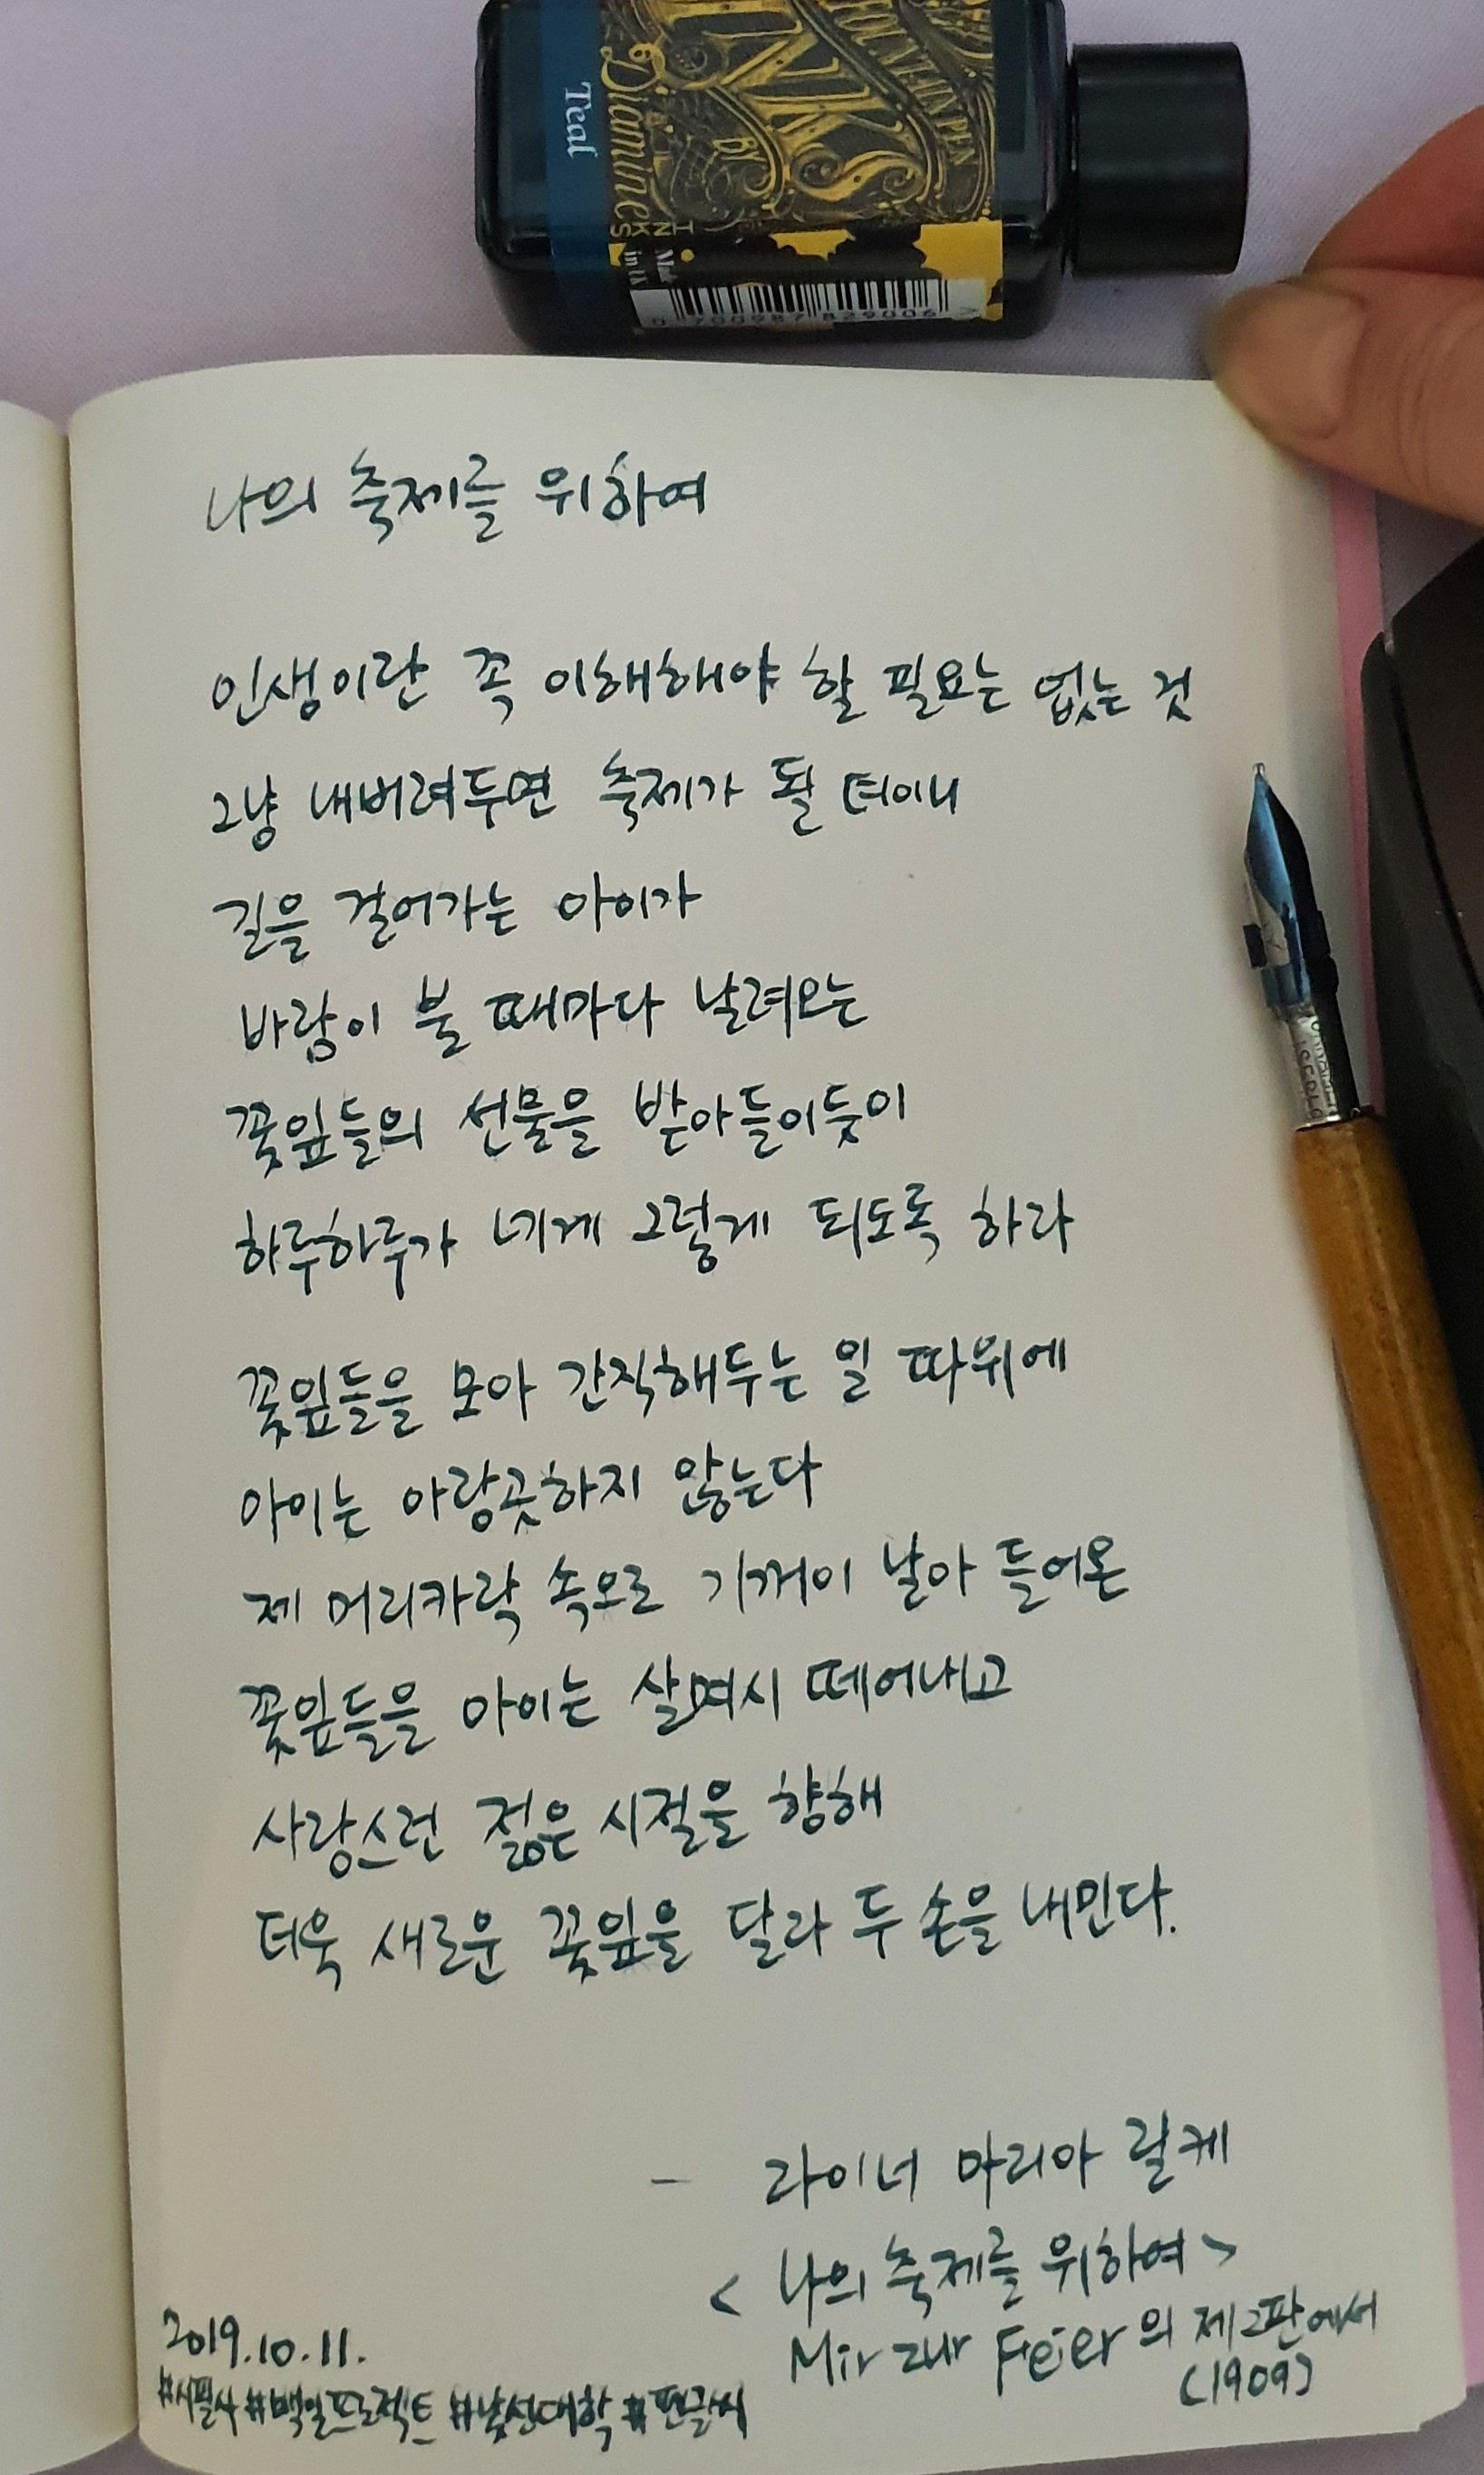 FOUNTAIN PEN
INK
BY
Diamine
Teal
INKS
0 700987 829006 >
나의 축제를 위하여
인생이란 꼭 이해해야 할 필요는 없는 것
그냥 내버려두면 축제가 될 터이니
길을 걸어가는 아이가
바람이 불 때마다 날려오는
꽃잎들의 선물을 받아들이듯이
하루하루가 네게 그렇게 되도록 하라
꽃잎들을 모아 간직해두는 일 따위에
아이는 아랑곳하지 않는다
제 머리카락 속으로 기꺼이 날아 들어온
꽃잎들을 아이는 살며시 떼어내고
사랑스런 젊은 시절을 향해
더욱 새로운 꽃잎을 달라 두 손을 내민다.
- 라이너 마리아 릴케
< 나의 축제를 위하여 >
Mir zur Feier의 제2판에서
(1909)
2019.10.11.
#시필사 #백일프로젝트 #낯선대학 #펜글씨